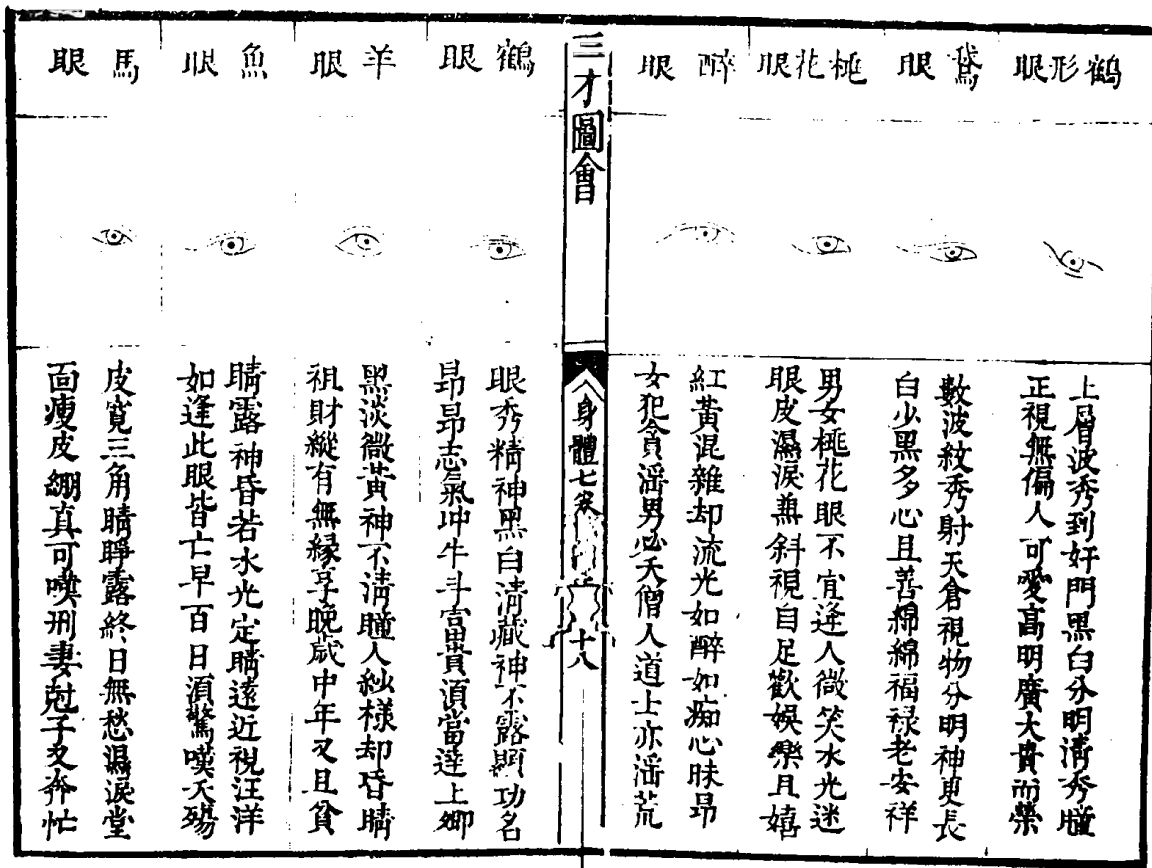 鶴形眼
上層波秀到奸門黑白分明清秀瞳
正視無偏人可愛高明廣大貴而榮
鵞眼
數波紋秀射天倉視物分明神更長
白少黑多心且善綿綿福禄老安祥
桃花眼
男女桃花眼不宜逢人微笑水光迷
眼皮濕淚兼斜視自足歡娛樂且嬉
醉眼
紅黃混雜却流光如醉如痴心昧昂
女犯貪滛男必夭僧人道士亦滛荒
三才圖會
身體七
十八
鶴眼
眼秀精神黑白清藏神不露顯功名
昂昂志氣冲牛斗富貴須當達上卿
羊眼
黑淡微黃神不清瞳人紗様却昏睛
祖財縱有無縁享晚歲中年又且貧
魚眼
睛露神昏若水光定睛遠近視汪洋
如逢此眼皆亡早百日須驚嘆夭殤
馬眼
皮寛三角睛睜露終日無愁濕淚堂
面瘦皮綳真可嘆刑妻尅子又奔忙